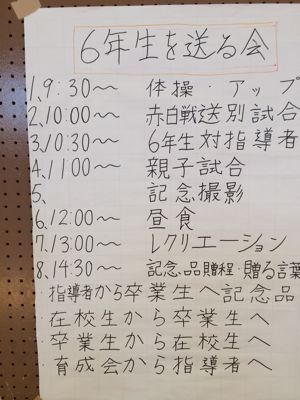 6年生を送る会
1、9:30〜 体操・アップ
2、10:00〜 赤白戦送別試合
3、10:30〜 6年生対指導者
4、1100〜 親子試合
5、 記念撮影
6、12:00〜 昼食
7、13:00〜 レクリエーション
8、14:30〜 記念品贈程・贈る言葉
・指導者から卒業生へ記念品
・在校生から卒業生へ
・卒業生から在校生へ
・育成会から指導者へ